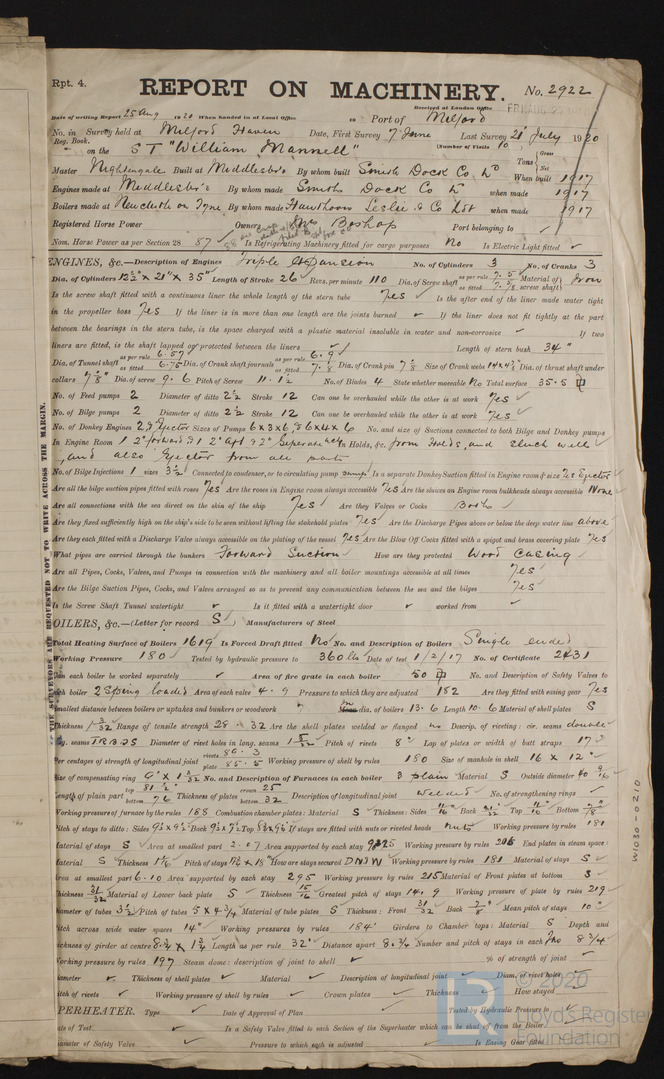 Rpt. 4.
REPORT ON MACHINERY. No. 2922
Received at London Office
Date of writing Report 25 Aug 1920 When handed in at Local Office 10 Port of Milford
No. in Survey held at Milford Haven Date, First Survey 7 June Last Survey 21 July 1920
Reg. Book. (Number of Visits 10
on the ST "William Mannell" Tons { Gross Net
Master Nightengale Built at Middlesbro By whom built Smiths Dock Co Ld When built 1917
Engines made at Middlesbro By whom made Smiths Dock Co Ld when made 1917
Boilers made at Newcastle on Tyne By whom made Hawthorn Leslie & Co Ltd when made 1917
Registered Horse Power Owners Port belonging to ✓
Nom. Horse Power as per Section 28 87 Is Refrigerating Machinery fitted for cargo purposes No Is Electric Light fitted ✓
ENGINES, &c.—Description of Engines Triple Expansion No. of Cylinders 3 No. of Cranks 3
Dia. of Cylinders 12½" x 21" x 35" Length of Stroke 26 Revs. per minute 110 Dia. of Screw shaft as per rule 7.5 as fitted 7.5/8 Material of screw shaft Iron
Is the screw shaft fitted with a continuous liner the whole length of the stern tube Yes Is the after end of the liner made water tight
in the propeller boss Yes If the liner is in more than one length are the joints burned ✓ If the liner does not fit tightly at the part
between the bearings in the stern tube, is the space charged with a plastic material insoluble in water and non-corrosive ✓ If two
liners are fitted, is the shaft lapped or protected between the liners ✓ Length of stern bush 34"
Dia. of Tunnel shaft as per rule 6.57 as fitted 6.75 Dia. of Crank shaft journals as per rule 6.9 as fitted 7.8 Dia. of Crank pin 7⅛ Size of Crank webs 14x4⅞ Dia. of thrust shaft under
collars 7⅛" Dia. of screw 9.6 Pitch of Screw 11.1½ No. of Blades 4 State whether moveable No Total surface 35.5
No. of Feed pumps 2 Diameter of ditto 2½ Stroke 12 Can one be overhauled while the other is at work Yes
No. of Bilge pumps 2 Diameter of ditto 2½ Stroke 12 Can one be overhauled while the other is at work Yes
No. of Donkey Engines 2 & Ejector Sizes of Pumps 6x3x6, & 6x4x6 No. and size of Suctions connected to both Bilge and Donkey pumps
In Engine Room 1 2" forward & 1 2" aft & 2" Separate In Holds, &c. from Holds, and slush well
and also Ejector from all parts
No. of Bilge Injections 1 sizes 3½ Connected to condenser, or to circulating pump pump Is a separate Donkey Suction fitted in Engine room & size Yes Ejector
Are all the bilge suction pipes fitted with roses Yes Are the roses in Engine room always accessible Yes Are the sluices on Engine room bulkheads always accessible None
Are all connections with the sea direct on the skin of the ship Yes Are they Valves or Cocks Both
Are they fixed sufficiently high on the ship's side to be seen without lifting the stokehold plates Yes Are the Discharge Pipes above or below the deep water line above
Are they each fitted with a Discharge Valve always accessible on the plating of the vessel Yes Are the Blow Off Cocks fitted with a spigot and brass covering plate Yes
What pipes are carried through the bunkers Forward Suction How are they protected Wood casing
Are all Pipes, Cocks, Valves, and Pumps in connection with the machinery and all boiler mountings accessible at all times Yes
Are the Bilge Suction Pipes, Cocks, and Valves arranged so as to prevent any communication between the sea and the bilges Yes
Is the Screw Shaft Tunnel watertight ✓ Is it fitted with a watertight door ✓ worked from ✓
OILERS, &c.—(Letter for record S) Manufacturers of Steel
Total Heating Surface of Boilers 1619 Is Forced Draft fitted No No. and Description of Boilers Single ended
Working Pressure 180 Tested by hydraulic pressure to 360 lbs Date of test 1/2/17 No. of Certificate 2431
Can each boiler be worked separately ✓ Area of fire grate in each boiler 50 No. and Description of Safety Valves to
each boiler 2 Spring loaded Area of each valve 4.9 Pressure to which they are adjusted 182 Are they fitted with easing gear Yes
Smallest distance between boilers or uptakes and bunkers or woodwork dia. of boilers 13.6 Length 10.6 Material of shell plates S
Thickness 1 3/32 Range of tensile strength 28.32 Are the shell plates welded or flanged no Descrip. of riveting: cir. seams double
long. seams TRBDS Diameter of rivet holes in long. seams 1 5/32 Pitch of rivets 8" Lap of plates or width of butt straps 17
Per centages of strength of longitudinal joint rivets 86.3 plate 85.5 Working pressure of shell by rules 180 Size of manhole in shell 16 x 12"
Size of compensating ring No. and Description of Furnaces in each boiler 3 plain Material S Outside diameter 40
Length of plain part top 81½" bottom 76 Thickness of plates crown 25 bottom 32 Description of longitudinal joint welded No. of strengthening rings ✓
Working pressure of furnace by the rules 188 Combustion chamber plates: Material S Thickness: Sides 11/16 Back 21/32 Top 11/16 Bottom 7/8
Pitch of stays to ditto: Sides 9½x9½ Back 9½x9½ Top If stays are fitted with nuts or riveted heads Nuts Working pressure by rules 181
Material of stays S Area at smallest part 2.07 Area supported by each stay Working pressure by rules End plates in steam space:
Material S Thickness Pitch of stays How are stays secured DNW Working pressure by rules 181 Material of stays S
Area at smallest part 6.10 Area supported by each stay 295 Working pressure by rules 215 Material of Front plates at bottom S
Thickness 31/32 Material of Lower back plate S Thickness 15/16 Greatest pitch of stays 14.9 Working pressure of plate by rules 219
Diameter of tubes 3½ Pitch of tubes 5 x 4¾ Material of tube plates S Thickness: Front 31/32 Back 7/8 Mean pitch of stays 10"
Pitch across wide water spaces 14" Working pressures by rules 184' Girders to Chamber tops: Material S Depth and
thickness of girder at centre 8.¾ x 1¾ Length as per rule 32" Distance apart 8.¾ Number and pitch of stays in each 8¾
Working pressure by rules 197 Steam dome: description of joint to shell ✓ % of strength of joint ✓
Diameter ✓ Thickness of shell plates ✓ Material ✓ Description of longitudinal joint ✓ Diam. of rivet holes ✓
Pitch of rivets ✓ Working pressure of shell by rules ✓ Crown plates ✓ Thickness ✓ How stayed
PERHEATER. Type ✓ Date of Approval of Plan ✓ Tested by Hydraulic Pressure to
Date of Test ✓ Is a Safety Valve fitted to each Section of the Superheater which can be shut off from the Boiler
Diameter of Safety Valve ✓ Pressure to which each is adjusted ✓ Is Easing Gear fitted
THE SURVEYORS ARE REQUESTED NOT TO WRITE ACROSS THE MARGIN.
W1030-0210
© 2020
Lloyd's Register
Foundation